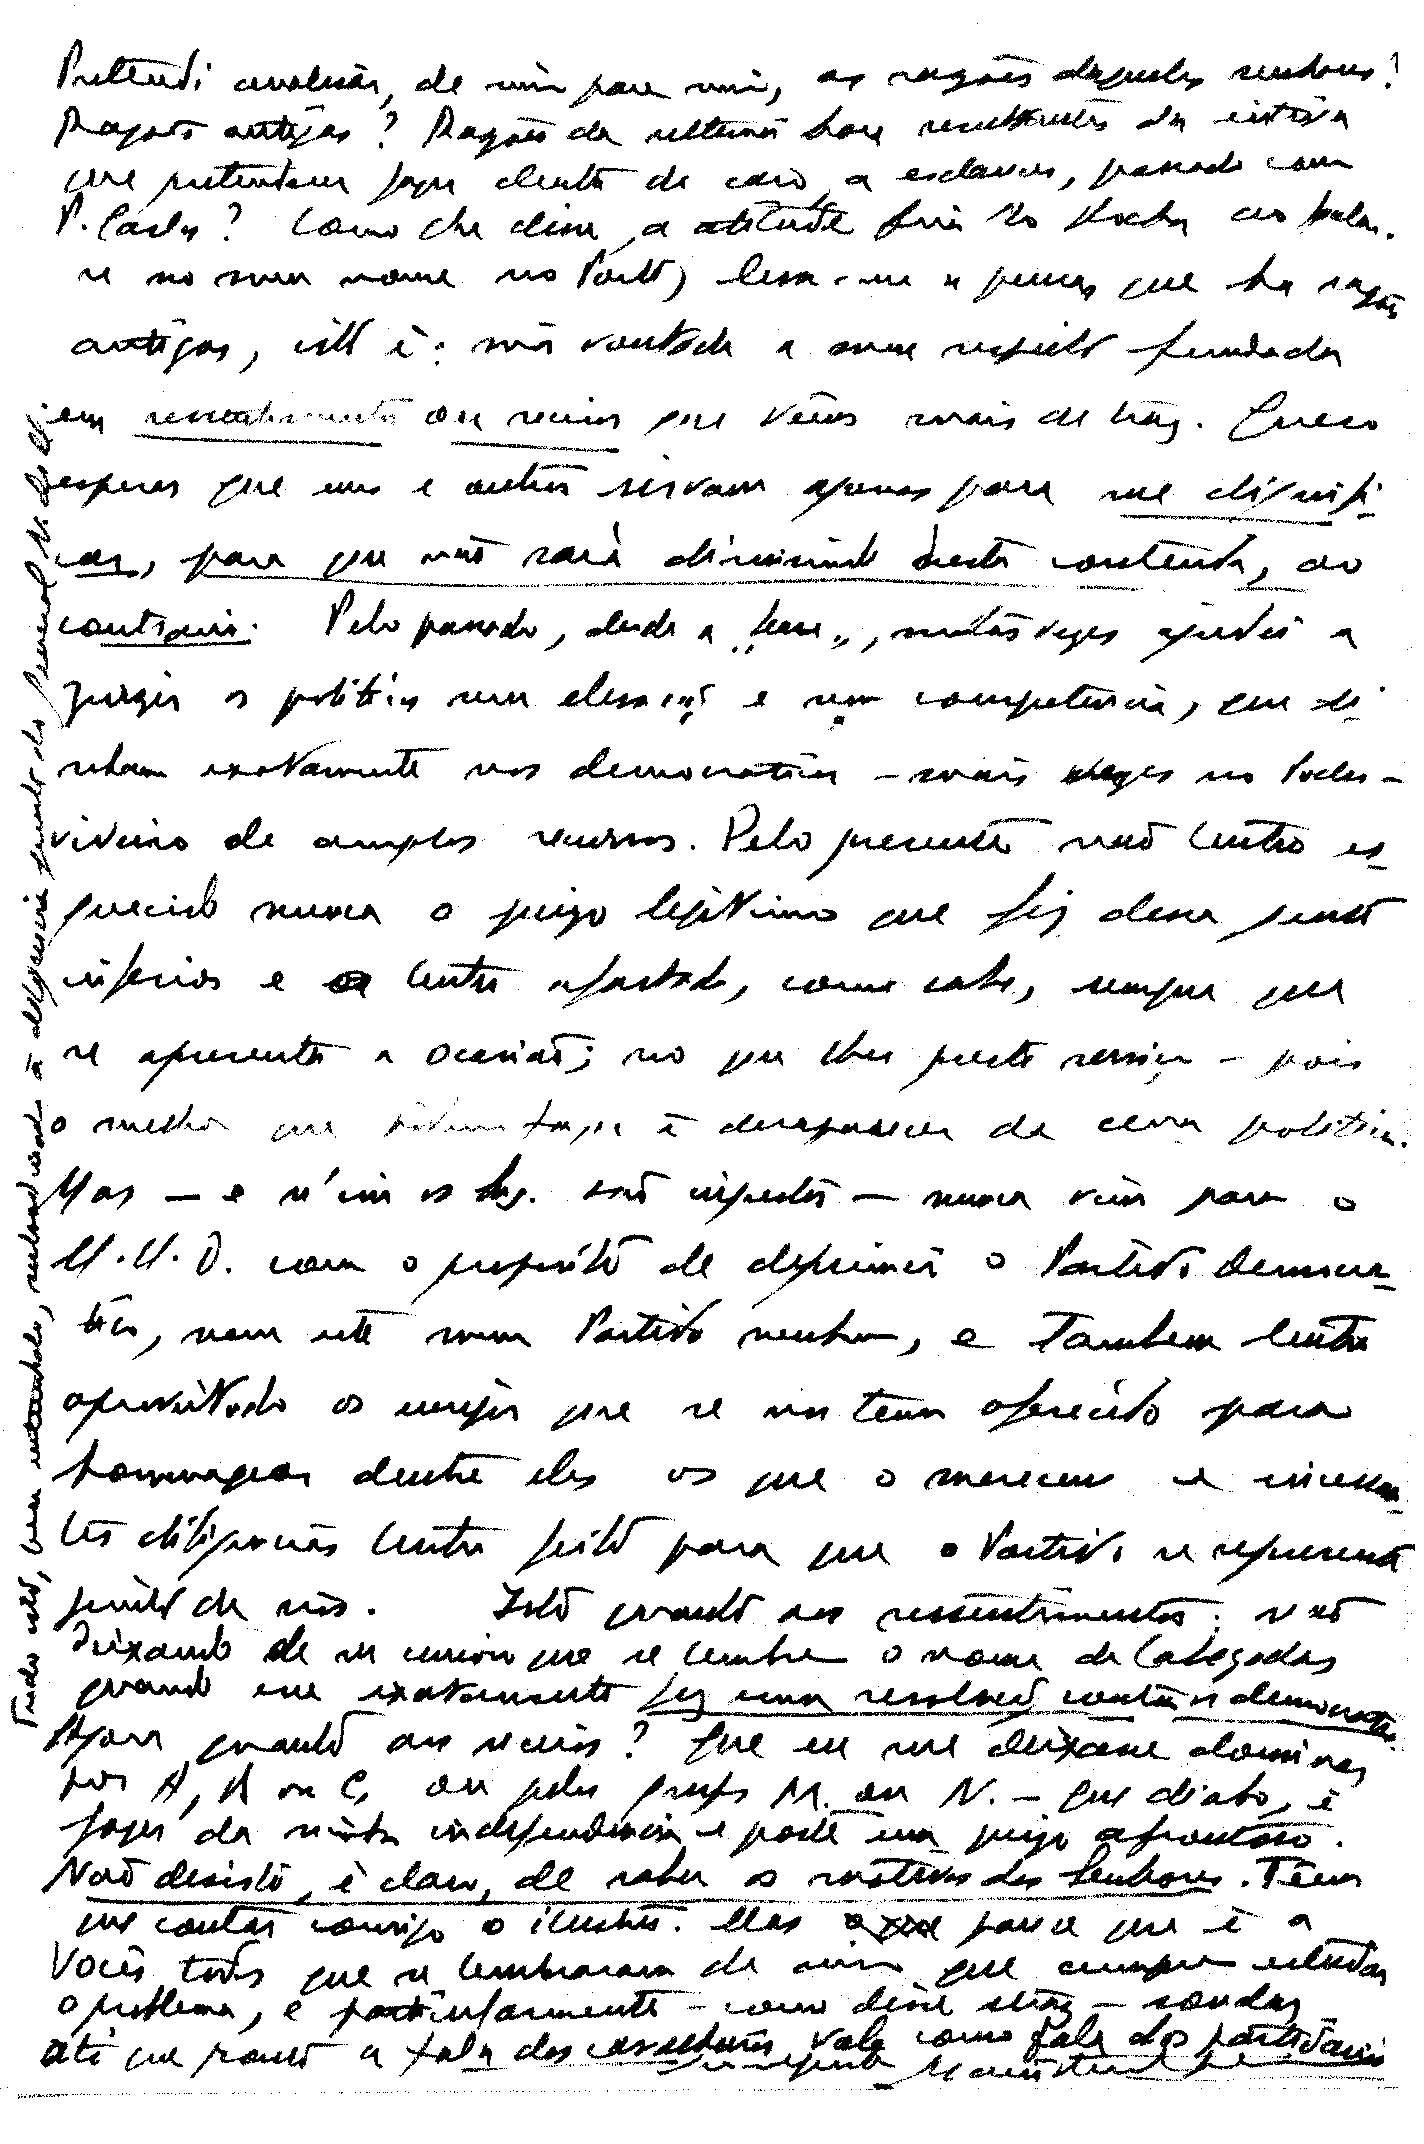 Pretendi analisar, de mim para mim, as razões daqueles senhores!
Razões antigas? Razões da ultima hora resultantes da
que pretendeu fazer dentro do caso, a esclarecer, passado com
P. Carlos? Como lhe disse, a atitude fria do Rocha ao falar-
se no meu nome no Porto, leva-me a pensar que ha razões
antigas, isto é: má vontade a meu respeito fundada
em ressentimentos ou receios que vêem mais de traz. Quero
esperar que uns e outros sirvam apenas para me dignifi-
car, para que não saia diminuido desta contenda, ao
contrario. Pelo passado, desde a "Seara", muitas vezes ajudei a
julgar os politicos sem elevação e sem competencia, que ti-
nham exatamente nos democraticos – mais vezes no Poder –
viveiro de amplos recursos. Pelo presente não tenho es-
quecido nunca o juizo legitimo que fiz dessa gente
inferior e tenho afastado, como sabe, sempre que
se apresenta a ocasião; no que lhes presto serviço – pois
o melhor que podem fazer é desaparecer da cena politica.
Mas – e n'isso os Snrs. são injustos – nunca vim para o
M.U.D. com o proposito de deprimir o Partido Democra-
tico, nem este nem Partido nenhum, e tambem tenho
aproveitado os ensejos que se me tem oferecido para
homenagear dentre eles os que o merecem e incessan-
tes diligencias tenho feito para que o Partido se represente
junto de nós. Isto quanto aos ressentimentos: não
deixando de ser curioso que se lembre o nome de Cabeçadas
quando esse exatamente fez uma revolução contra os democraticos.
Agora quanto aos receios? Que eu me deixasse dominar
por A, B ou C, ou pelos grupos M. ou N. – Que diabo, é
fazer da minha independencia e porte um juizo afrontoso.
Não desisto, é claro, de saber os motivos dos Senhores. Têem
que contar comigo o ilustres. Mas parece que é a
Vocês todos que se lembraram de mim que cumpre estudar
o problema, e particularmente – como disse atraz – sondar
até que ponto a fala dos cavalheiros vale como fala dos partidarios
Tudo isto, bem entendido, subordinado á diligencia junto do General N. de M.